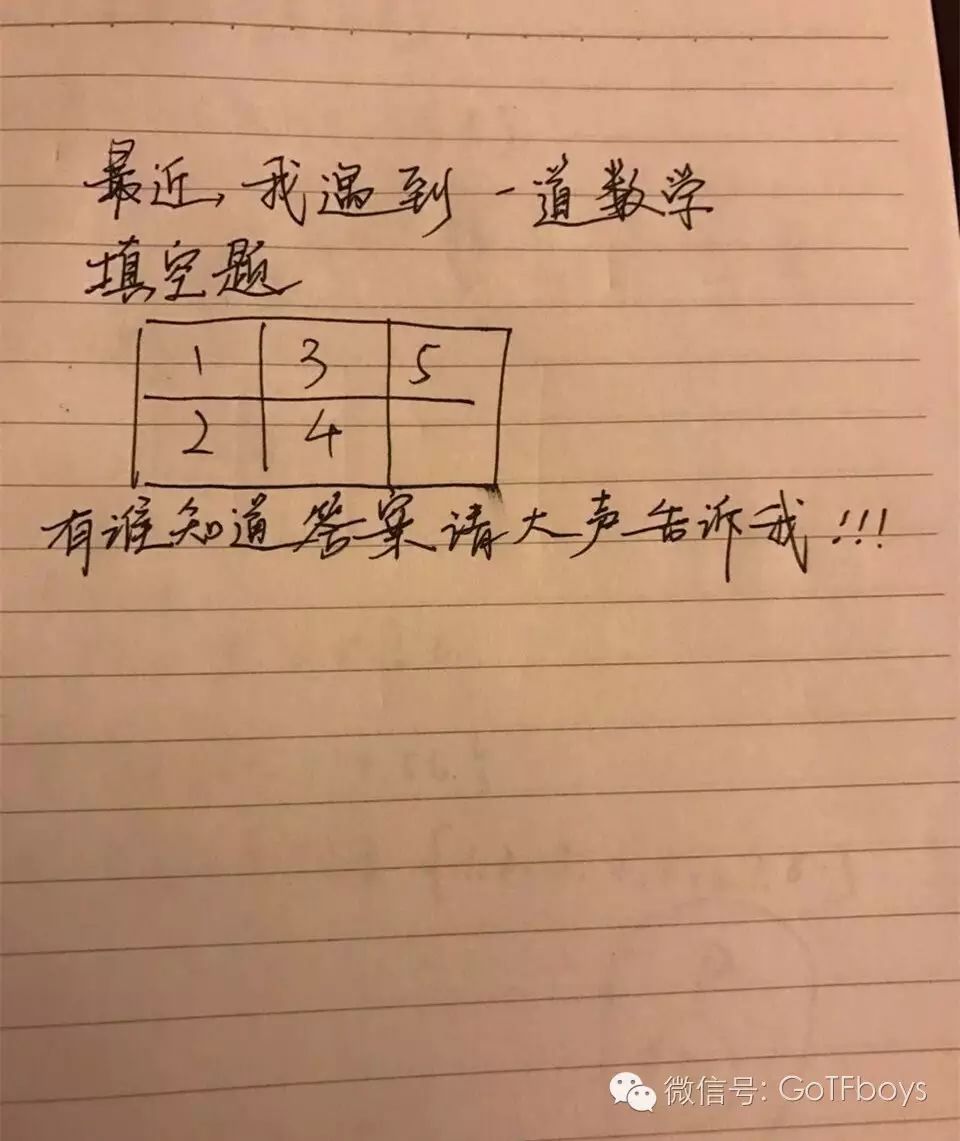 最近,我遇到一道数学
填空题
1 3 5
2 4
有谁知道答案请大声告诉我!!!
微信号: GoTFboys